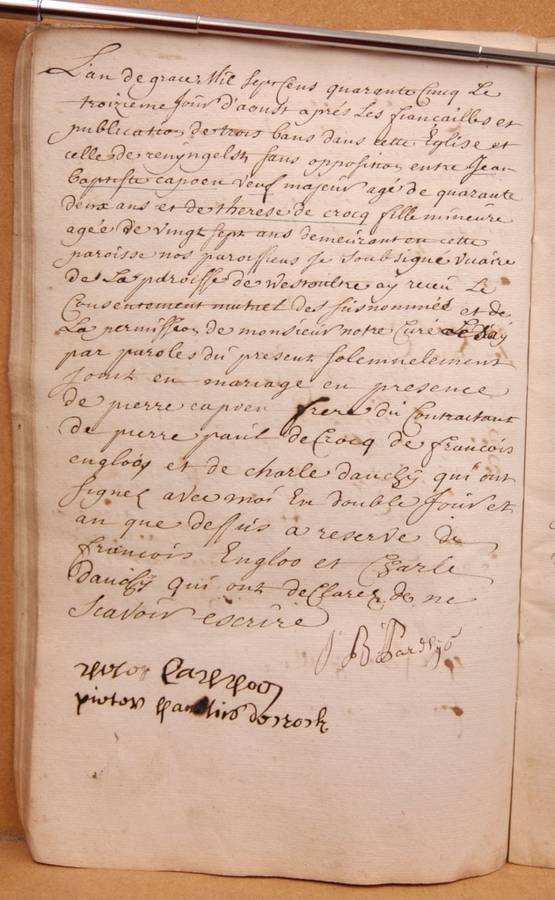 L'an de grace Mil Sept Cens quarante Cincq Le
troizieme Jour D'aoust aprés Les fiancailles et
publication de trois bans dans cette Eglise et
celle de renyngelst sans opposition entre Jean
Baptiste capoen veuf majeur agé de quarante
deux ans et de therese de crocq fille mineure
agée de vingt sept ans demeurant en cette
paroisse nos paroissiens Je Soubsigné vicaire
de La paroisse de westoutre ay receu Le
Consentement mutuel des susnommés et de
La permission de monsieur notre Curé
par paroles du present Solemnelement
joint en mariage en presence
de pierre capoen frere du Contractant
de pierre paul deCrocq de francois
engloos et de charle dauchÿ qui ont
signez avec moi En double Jour et
an que dessus a reserve de
francois Engloo et Charle
dauchÿ qui ont deClarez de ne
scavoir escrire
J B
pieter
pieter de crock